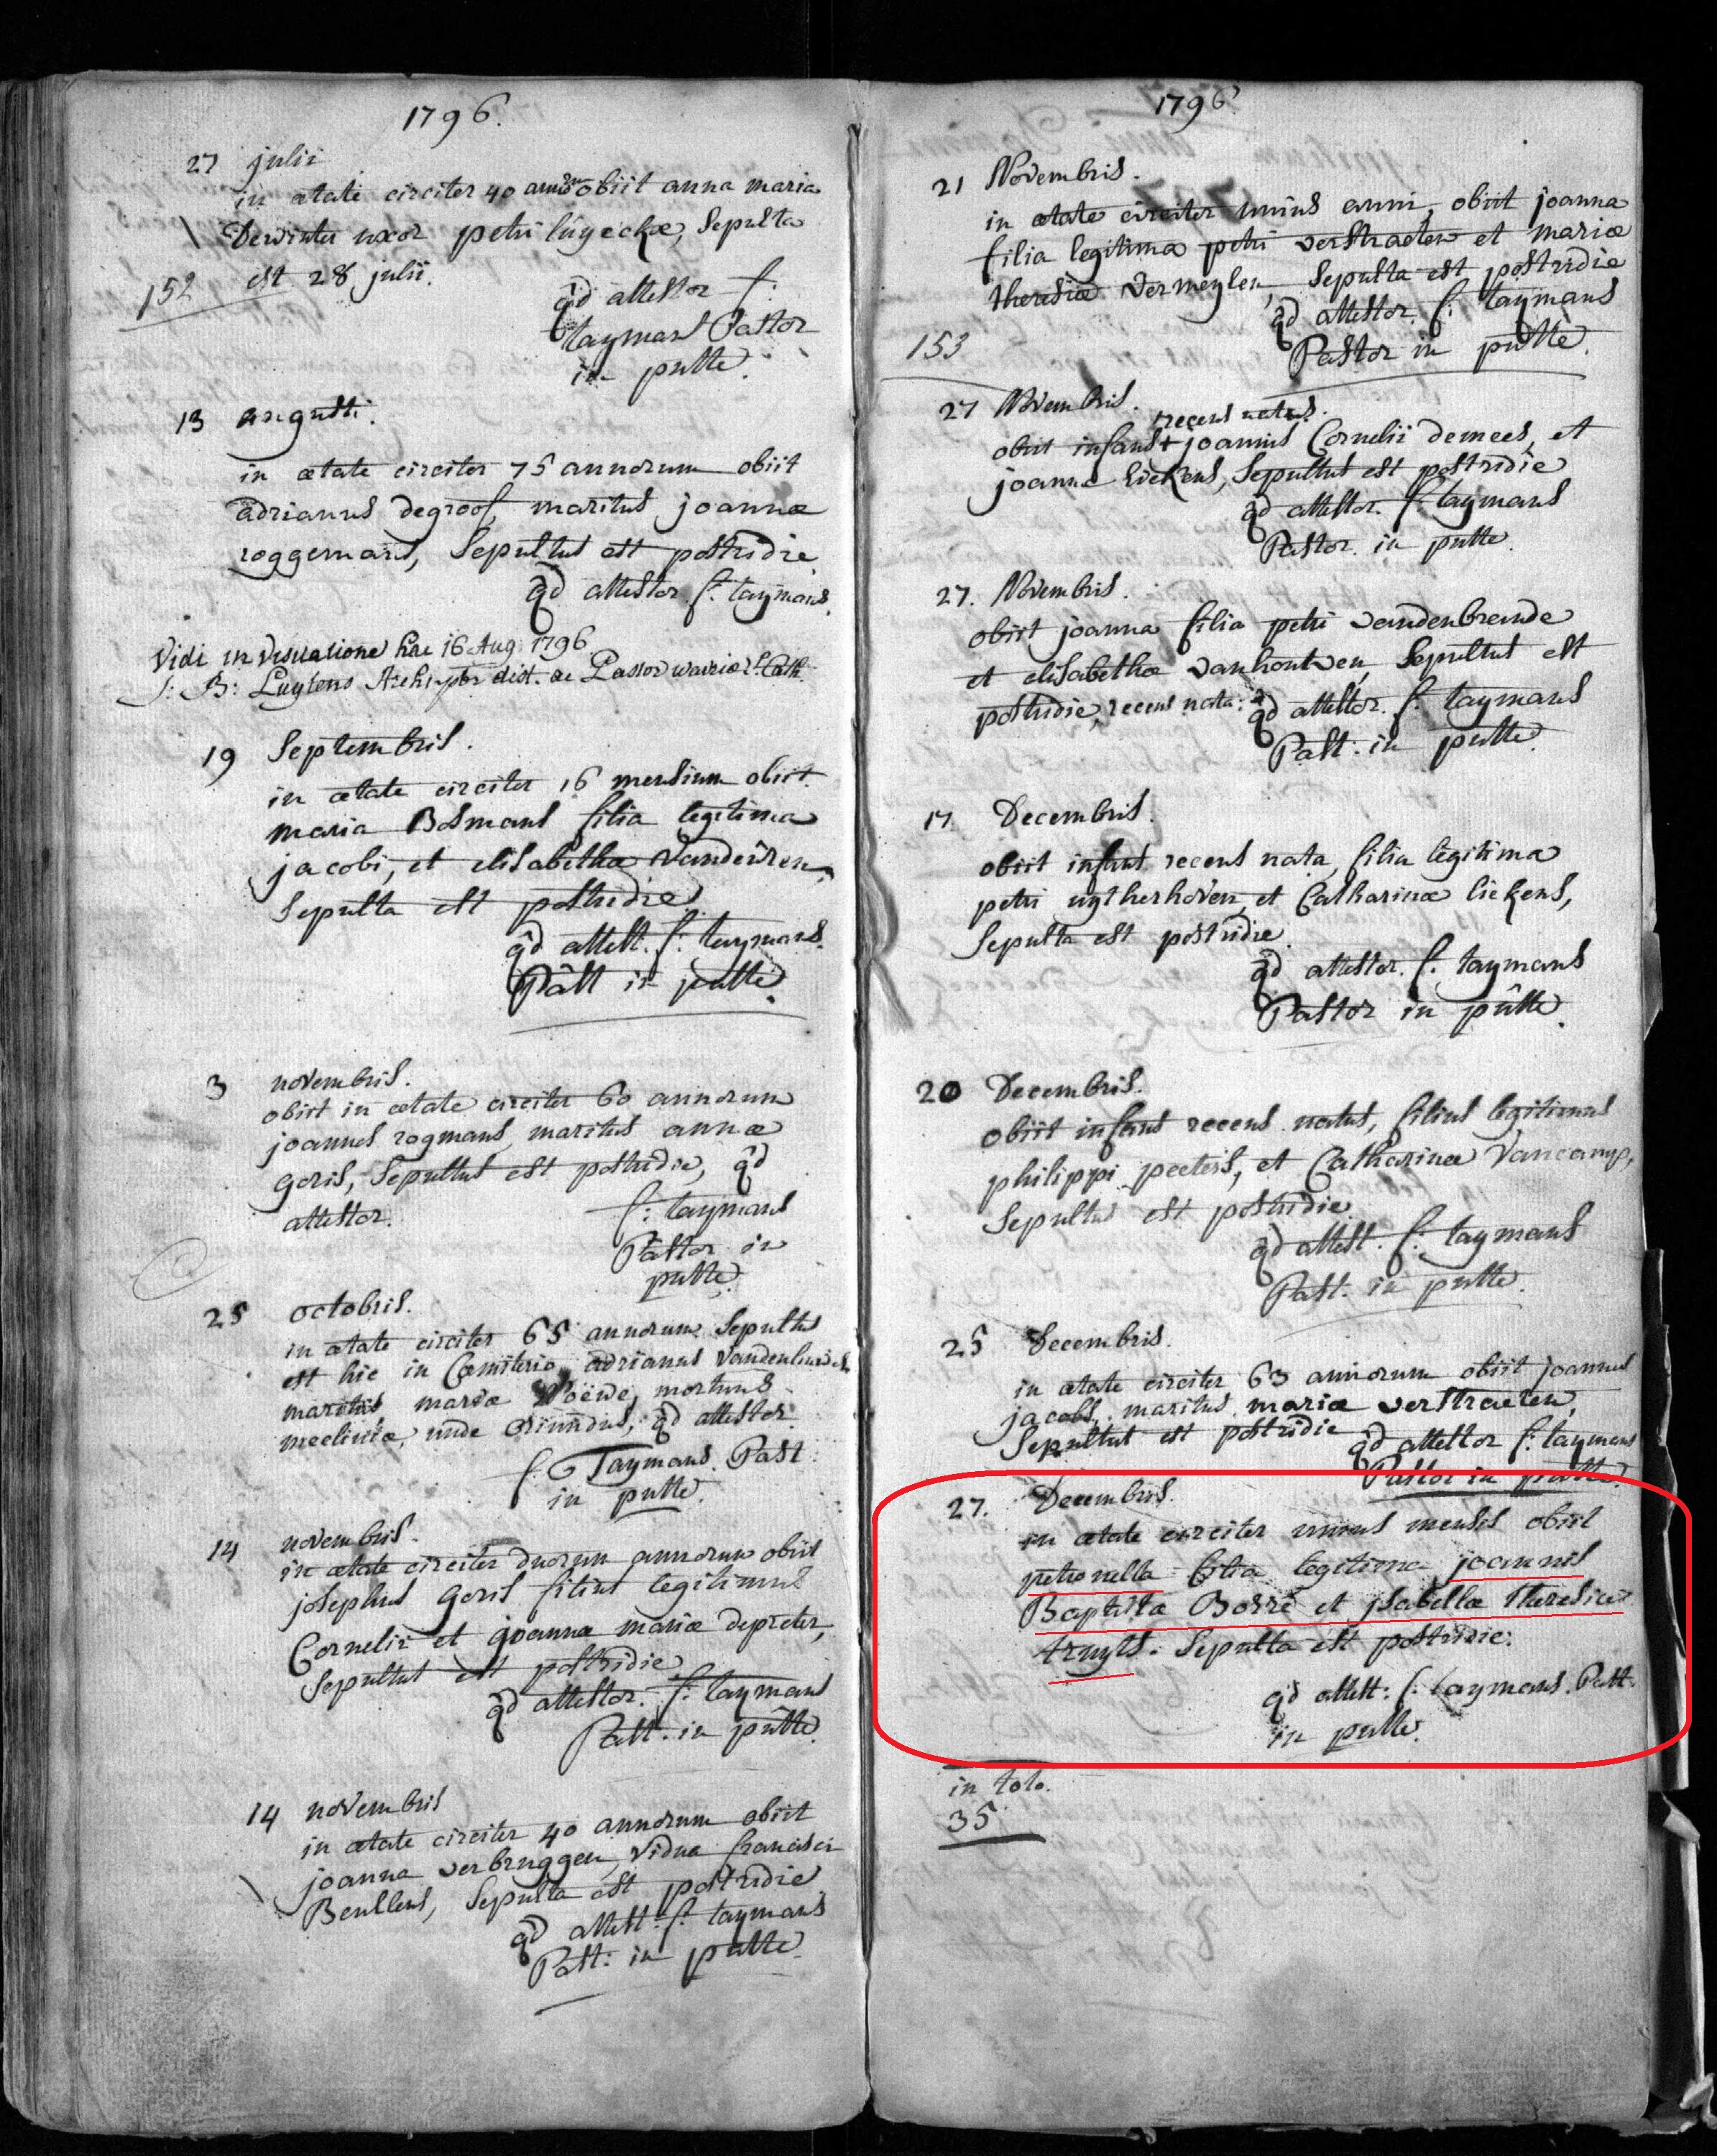 1796.
27 julii
in ætate circiter 40 annorum obiit anna maria
Dewinter uxor petri luyckx, Sepulta
est 28 julii.
152
qd attestor f:
taymans Pastor
in putte.
13 augusti.
in ætate circiter 75 annorum obiit
adrianus degroof, maritus joannæ
roggemans, Sepultus est postridie
qd attestor f: taymans.
Vidi in Visitatione hac 16 Aug: 1796
J: B: Luytens Archipbr dist. ac Pastor
19 Septembris.
in ætate circiter 16 mensium obiit
maria Bosmans filia legitima
jacobi, et elisabethæ
Sepulta est postridie
qd attest. f: taymans.
Past in putte
3 novembris.
obiit in ætate circiter 60 annorum
joannes rogmans maritus annæ
goris, Sepultus est postridie, qd
attestor.
f: taymans
Pastor in
putte.
25 octobris.
in ætate circiter 65 annorum Sepultus
est hic in Cæmiterio adrianus
maritus mariæ mortuus
mecliniæ, unde oriundus, qd attestor
f: Taymans. Past:
in putte.
14 novembris.
in ætate circiter duorum annorum obiit
josephus Goris filius legitimus
Cornelii et joannæ mariæ depreter,
Sepultus est postridie
qd attestor. f: taymans
Past. in putte.
14 novembris
in ætate circiter 40 annorum obiit
joanna verbruggen, vidua francisci
Benllens, Sepulta est postridie
qd attest: f: taymans
Past: in putte.
1796.
21 Novembris.
in ætate circiter unius anni, obiit joanna
filia legitima petri verstraeten et mariæ
theresiæ Vermeylen, Sepulta est postridie
qd attestor. f: taymans
153
Pastor in putte.
27 Novembris.
recens natus.
obiit infans + joannis Cornelii demees, et
joannæ liekens, Sepultus est postridie
qd attestor. f: taymans
Pastor. in putte.
27. Novembris.
obiit joanna filia petri vandenbrande
et elisabethæ vanhoutven, Sepultus est
postridie, recens nata: qd attestor. f: taymans
Past: in putte.
17. Decembris.
obiit infans recens nata, filia legitima
petri uytherhoven, et Catharinæ liekens,
Sepulta est postridie.
qd attestor. f: taymans
Pastor in putte.
20 Decembris.
obiit infans recens natus, filius legitimus
philippi peeters, et Catharinæ Vancamp,
Sepultus est postridie.
qd attest. f: taymans
Past. in putte.
25 Decembris.
in ætate circiter 63 annorum obiit joannes
jacobs, maritus mariæ verstraeten,
Sepultus est postridie qd attestor f: taymans
Pastor in putte.
27. Decembris.
in ætate circiter unius mensis obiit
petronella filia legitima joannis
Baptista Borré et jsabellæ Theresiæ
truyts. Sepulta est postridie.
qd attest: f: taymans. Past.
in putte.
in toto.
35